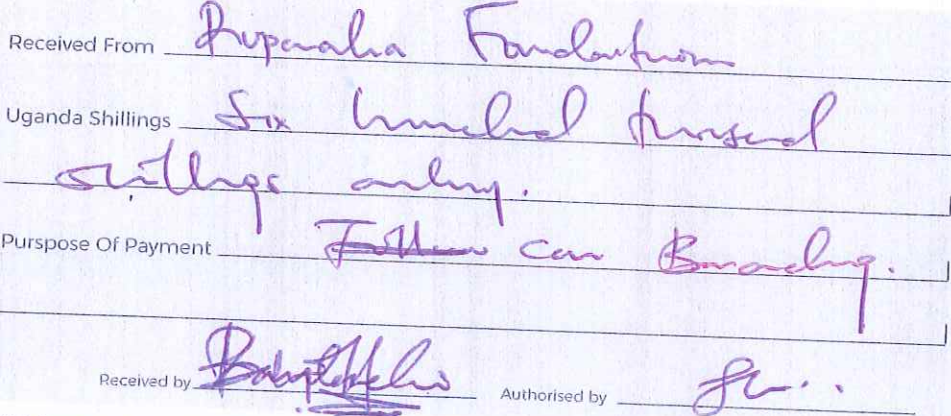 Received From Ruparelia Foundation
Uganda Shillings Six hundred thousand
shillings only.
Purspose Of Payment car Branding.
Received by Authorised by